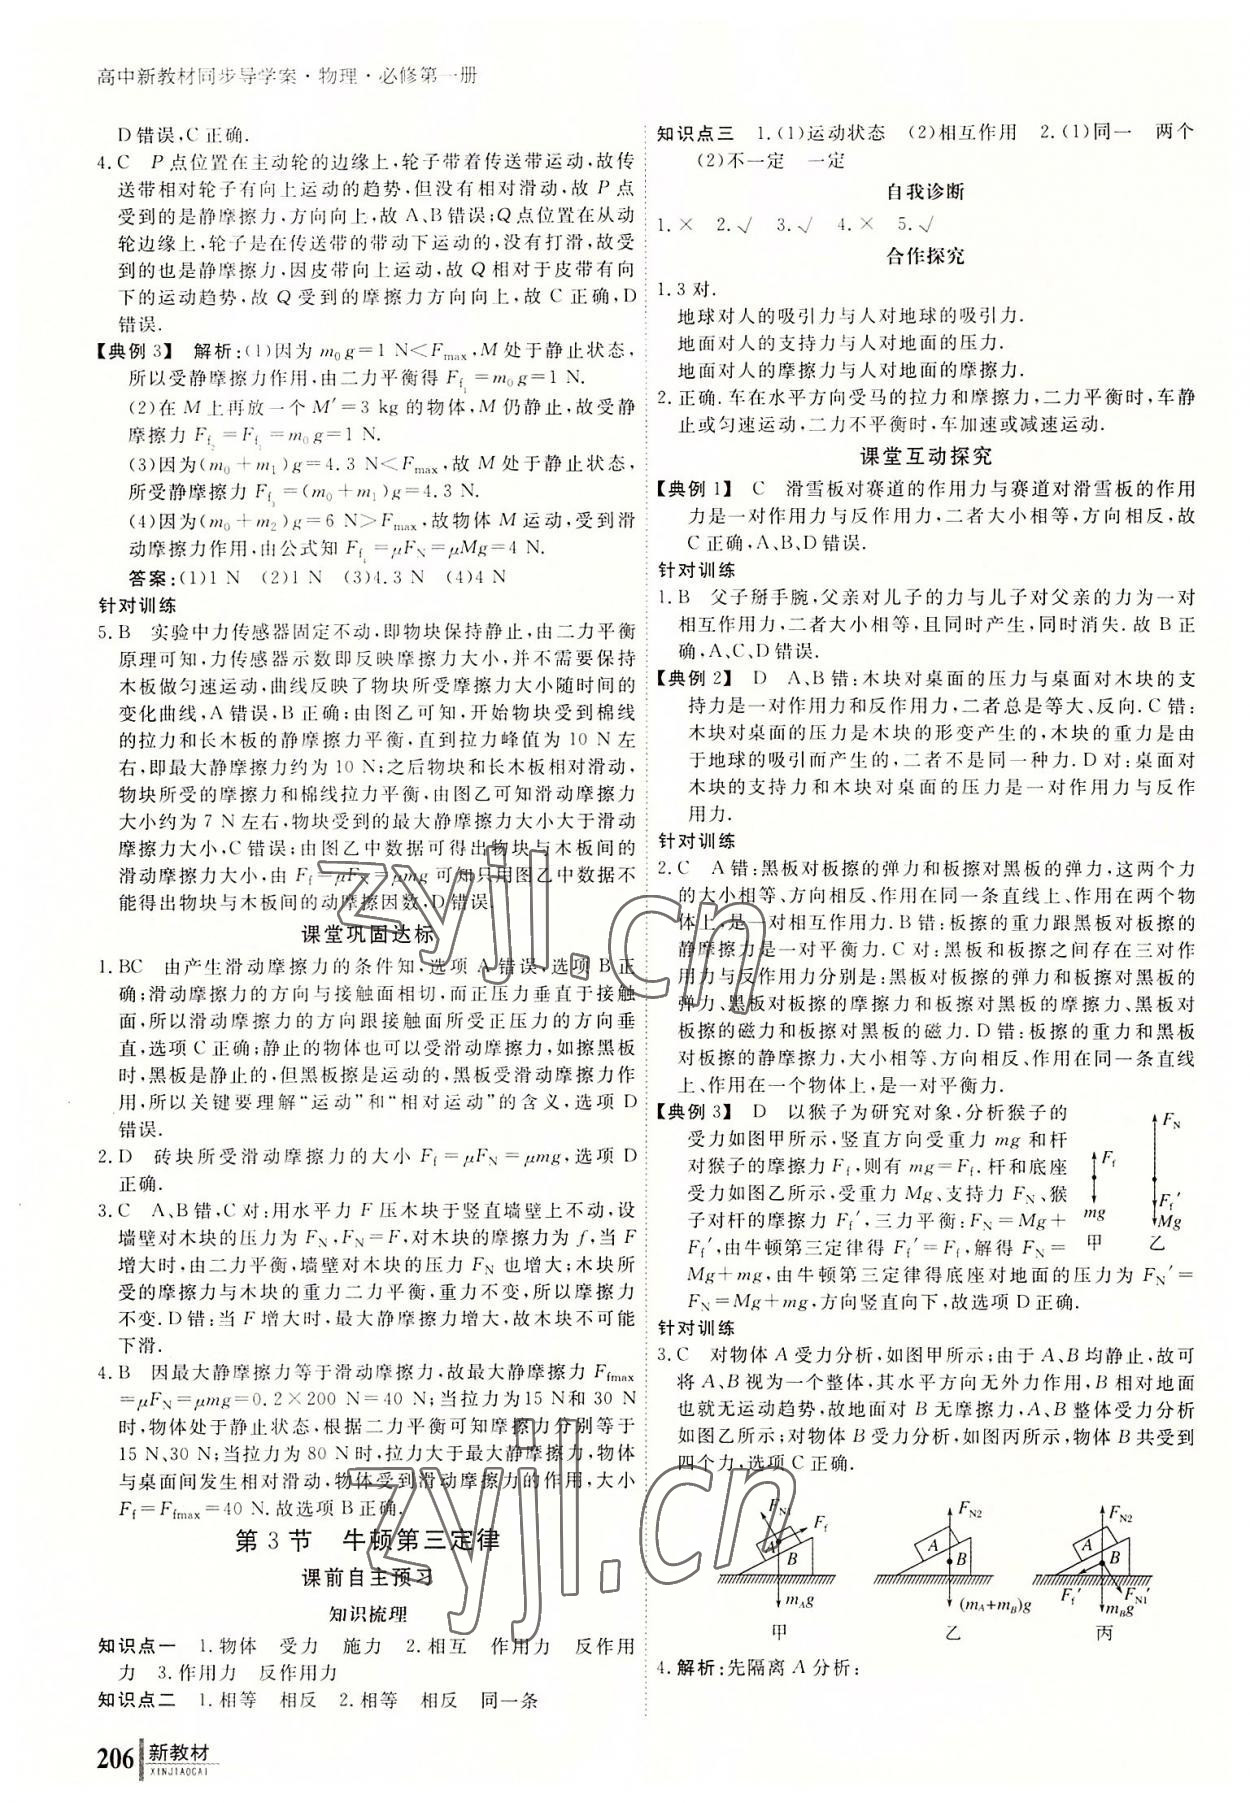 高中新教材同步导学案·物理·必修第一册
D错误,C正确.
4.C　P点位置在主动轮的边缘上,轮子带着传送带运动,故传
送带相对轮子有向上运动的趋势,但没有相对滑动,故P点
受到的是静摩擦力,方向向上,故A、B错误;Q点位置在从动
轮边缘上,轮子是在传送带的带动下运动的,没有打滑,故受
到的也是静摩擦力,因皮带向上运动,故Q相对于皮带有向
下的运动趋势,故Q受到的摩擦力方向向上,故C正确,D
错误.
【典例3】　解析:(1)因为m₀g=1 N<Fmax,M处于静止状态,
所以受静摩擦力作用,由二力平衡得Ff₁=m₀g=1 N.
(2)在M上再放一个M′=3 kg的物体,M仍静止,故受静
摩擦力Ff₂=Ff₁=m₀g=1 N.
(3)因为(m₀+m₁)g=4.3 N<Fmax,故M处于静止状态,
所受静摩擦力Ff₃=(m₀+m₁)g=4.3 N.
(4)因为(m₀+m₂)g=6 N>Fmax,故物体M运动,受到滑
动摩擦力作用,由公式知Ff₄=μFN=μMg=4 N.
答案:(1)1 N　(2)1 N　(3)4.3 N　(4)4 N
针对训练
5.B　实验中力传感器固定不动,即物块保持静止,由二力平衡
原理可知,力传感器示数即反映摩擦力大小,并不需要保持
木板做匀速运动,曲线反映了物块所受摩擦力大小随时间的
变化曲线,A错误,B正确;由图乙可知,开始物块受到棉线
的拉力和长木板的静摩擦力平衡,直到拉力峰值为10 N左
右,即最大静摩擦力约为10 N;之后物块和长木板相对滑动,
物块所受的摩擦力和棉线拉力平衡,由图乙可知滑动摩擦力
大小约为7 N左右,物块受到的最大静摩擦力大小大于滑动
摩擦力大小,C错误;由图乙中数据可得出物块与木板间的
滑动摩擦力大小,由Ff=μFN=μmg可知只用图乙中数据不
能得出物块与木板间的动摩擦因数,D错误.
课堂巩固达标
1.BC　由产生滑动摩擦力的条件知,选项A错误,选项B正
确;滑动摩擦力的方向与接触面相切,而正压力垂直于接触
面,所以滑动摩擦力的方向跟接触面所受正压力的方向垂
直,选项C正确;静止的物体也可以受滑动摩擦力,如擦黑板
时,黑板是静止的,但黑板擦是运动的,黑板受滑动摩擦力作
用,所以关键要理解“运动”和“相对运动”的含义,选项D
错误.
2.D　砖块所受滑动摩擦力的大小Ff=μFN=μmg,选项D
正确.
3.C　A、B错,C对:用水平力F压木块于竖直墙壁上不动,设
墙壁对木块的压力为FN,FN=F,对木块的摩擦力为f,当F
增大时,由二力平衡,墙壁对木块的压力FN也增大;木块所
受的摩擦力与木块的重力二力平衡,重力不变,所以摩擦力
不变.D错:当F增大时,最大静摩擦力增大,故木块不可能
下滑.
4.B　因最大静摩擦力等于滑动摩擦力,故最大静摩擦力Ffmax
=μFN=μmg=0.2×200 N=40 N;当拉力为15 N和30 N
时,物体处于静止状态,根据二力平衡可知摩擦力分别等于
15 N、30 N;当拉力为80 N时,拉力大于最大静摩擦力,物体
与桌面间发生相对滑动,物体受到滑动摩擦力的作用,大小
Ff=Ffmax=40 N.故选项B正确.
第3节　牛顿第三定律
课前自主预习
知识梳理
知识点一　1.物体　受力　施力　2.相互　作用力　反作用
力　3.作用力　反作用力
知识点二　1.相等　相反　2.相等　相反　同一条
206 新教材
XINJIAOCAI
知识点三　1.(1)运动状态　(2)相互作用　2.(1)同一　两个
(2)不一定　一定
自我诊断
1.×　2.√　3.√　4.×　5.√
合作探究
1.3对.
地球对人的吸引力与人对地球的吸引力.
地面对人的支持力与人对地面的压力.
地面对人的摩擦力与人对地面的摩擦力.
2.正确.车在水平方向受马的拉力和摩擦力,二力平衡时,车静
止或匀速运动,二力不平衡时,车加速或减速运动.
课堂互动探究
【典例1】　C　滑雪板对赛道的作用力与赛道对滑雪板的作用
力是一对作用力与反作用力,二者大小相等,方向相反,故
C正确,A、B、D错误.
针对训练
1.B　父子掰手腕,父亲对儿子的力与儿子对父亲的力为一对
相互作用力,二者大小相等,且同时产生,同时消失.故B正
确,A、C、D错误.
【典例2】　D　A、B错:木块对桌面的压力与桌面对木块的支
持力是一对作用力和反作用力,二者总是等大、反向.C错:
木块对桌面的压力是木块的形变产生的,木块的重力是由
于地球的吸引而产生的,二者不是同一种力.D对:桌面对
木块的支持力和木块对桌面的压力是一对作用力与反作
用力.
针对训练
2.C　A错:黑板对板擦的弹力和板擦对黑板的弹力,这两个力
的大小相等、方向相反、作用在同一条直线上、作用在两个物
体上,是一对相互作用力.B错:板擦的重力跟黑板对板擦的
静摩擦力是一对平衡力.C对:黑板和板擦之间存在三对作
用力与反作用力分别是:黑板对板擦的弹力和板擦对黑板的
弹力、黑板对板擦的摩擦力和板擦对黑板的摩擦力、黑板对
板擦的磁力和板擦对黑板的磁力.D错:板擦的重力和黑板
对板擦的静摩擦力,大小相等、方向相反、作用在同一条直线
上、作用在一个物体上,是一对平衡力.
【典例3】　D　以猴子为研究对象,分析猴子的
受力如图甲所示,竖直方向受重力mg和杆
对猴子的摩擦力Ff,则有mg=Ff.杆和底座
受力如图乙所示,受重力Mg、支持力FN、猴
子对杆的摩擦力Ff′,三力平衡:FN=Mg+
Ff′,由牛顿第三定律得Ff′=Ff,解得FN=
Mg+mg,由牛顿第三定律得底座对地面的压力为FN′=
FN=Mg+mg,方向竖直向下,故选项D正确.
Ff
mg
甲
FN
Ff′
Mg
乙
针对训练
3.C　对物体A受力分析,如图甲所示;由于A、B均静止,故可
将A、B视为一个整体,其水平方向无外力作用,B相对地面
也就无运动趋势,故地面对B无摩擦力,A、B整体受力分析
如图乙所示;对物体B受力分析,如图丙所示,物体B共受到
四个力,选项C正确.
FN1
Ff
A
B
mAg
甲
FN2
A
B
(mA+mB)g
乙
FN2
A
B
Ff′
FN1′
mBg
丙
4.解析:先隔离A分析:
zyjl.cn
zyjl.cn